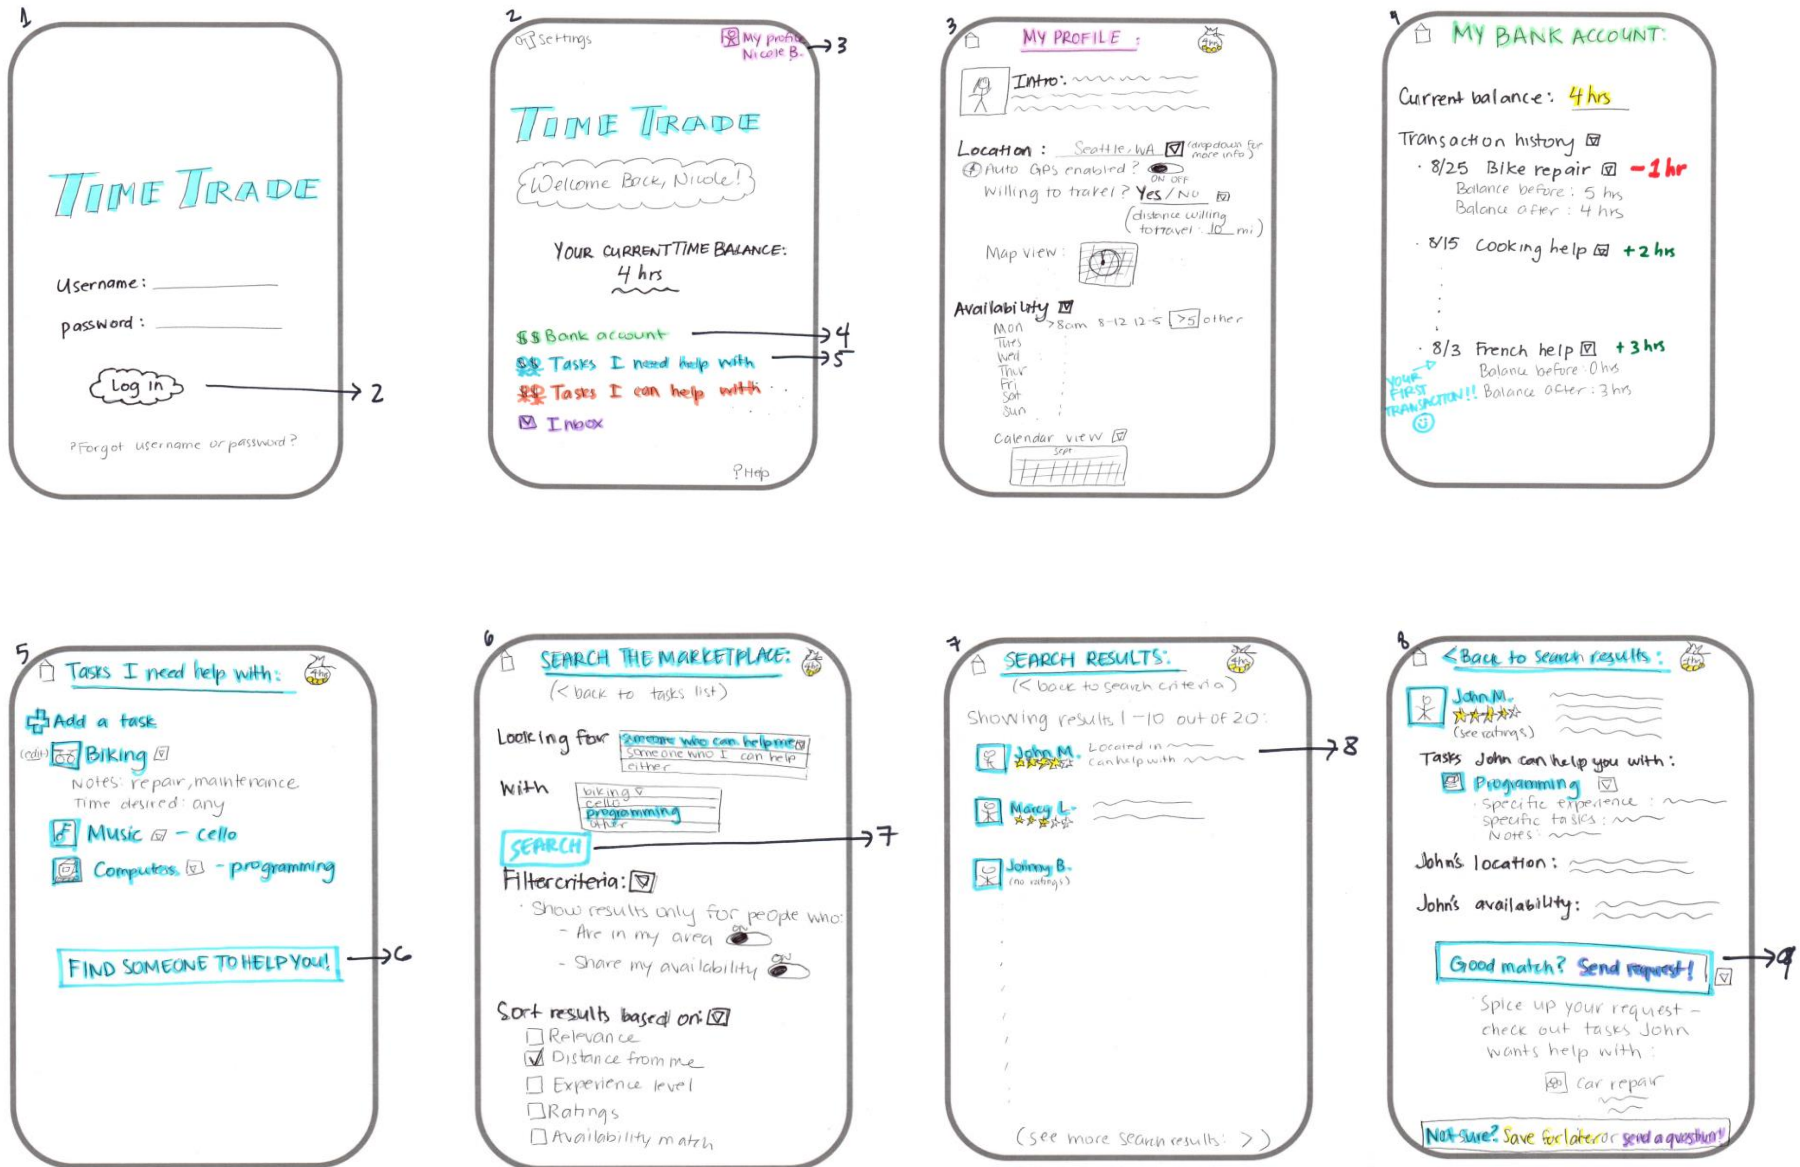 1
TIME TRADE
Username:
password:
Log in
2
?Forgot username or password?
2
Settings
My profile
Nicole B.
3
TIME TRADE
Welcome Back, Nicole!
YOUR CURRENT TIME BALANCE:
4 hrs
$$ Bank account
4
Tasks I need help with
5
Tasks I can help with
Inbox
? Help
3
MY PROFILE:
4hrs
Intro:
Location: Seattle, WA (dropdown for
more info)
Auto GPS enabled?
ON OFF
Willing to travel? Yes/No
(distance willing
to travel: 10 mi)
Map view:
Availability
Mon >8am 8-12 12-5 >5 other
Tues
Wed
Thur
Fri
Sat
Sun
Calendar view
Sept
4
MY BANK ACCOUNT:
Current balance: 4 hrs
Transaction history
8/25 Bike repair -1 hr
Balance before: 5 hrs
Balance after: 4 hrs
8/15 Cooking help +2 hrs
8/3 French help +3 hrs
Balance before: 0 hrs
Balance after: 3 hrs
YOUR
FIRST
TRANSACTION!!
5
Tasks I need help with:
4hrs
Add a task
(edit) Biking
Notes: repair, maintenance
Time desired: any
Music - cello
Computers - programming
FIND SOMEONE TO HELP YOU!
6
6
SEARCH THE MARKETPLACE:
4hrs
(< back to tasks list)
Looking for someone who can help me
Someone who I can help
either
With biking
cello
programming
other
SEARCH
7
Filter criteria:
Show results only for people who:
- Are in my area ON
- Share my availability ON
Sort results based on:
Relevance
Distance from me
Experience level
Ratings
Availability match
7
SEARCH RESULTS:
4hrs
(< back to search criteria)
Showing results 1-10 out of 20:
John M. Located in
can help with
8
Marcy L.
Johnny B.
(no ratings)
(see more search results: >)
8
< Back to search results:
4hrs
John M.
(see ratings)
Tasks John can help you with:
Programming
Specific experience:
Specific tasks:
Notes:
John's location:
John's availability:
Good match? Send request!
9
Spice up your request -
check out tasks John
wants help with:
Car repair
Not sure? Save for later or send a question!